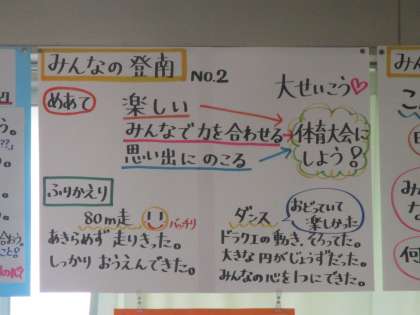 みんなの登南 NO.2
大せいこう
めあて
楽しい
みんなで力を合わせる
思い出にのこる
体育大会に
しよう!
ふりかえり
80m走 バッチリ
あきらめず走りきった。
しっかりおうえんできた。
ダンス
おどっていて
楽しかった
ドラクエの動き、そろってた。
大きな円がじょうずだった。
みんなの心を1つにできた。